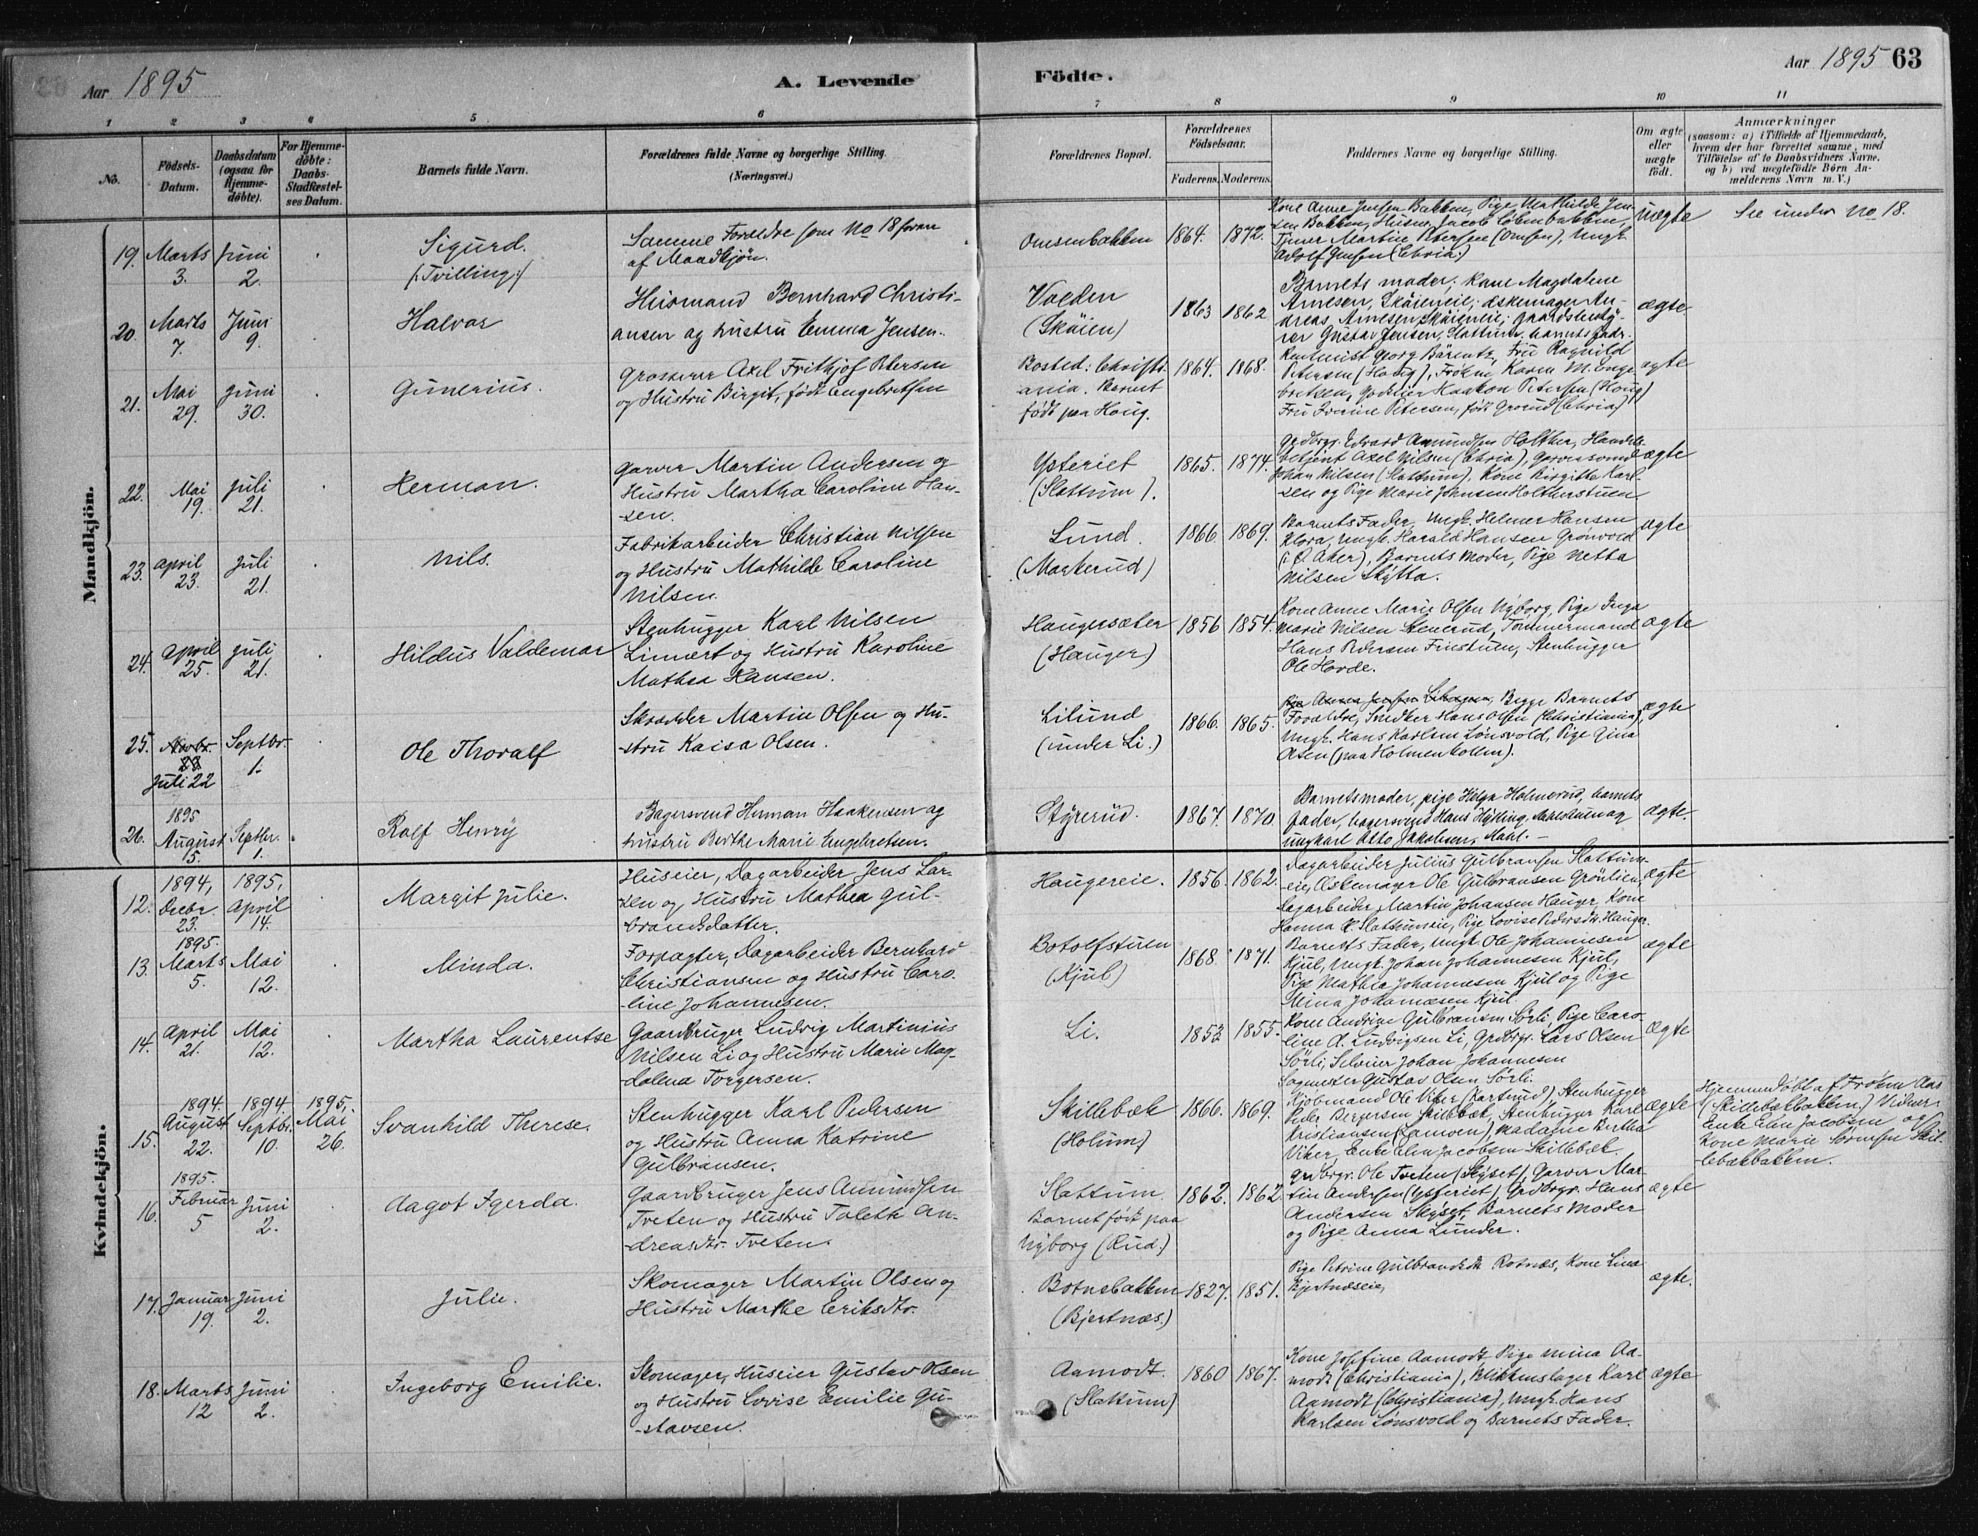 Aar 1895
A. Levende Födte.
Aar 1895 63
1 2 3 4 5 6 7 8 9 10 11
No.
Födsels-Datum.
Daabsdatum (ogsaa for Hjemmedöbte).
For Hjemmedöbte: Daabs-Stadfæstelses Datum.
Barnets fulde Navn.
Forældrenes fulde Navne og borgerlige Stilling.
(Næringsvei.)
Forældrenes Bopæl.
Forældrenes Födselsaar.
Faderens. Moderens.
Faddernes Navne og borgerlige Stilling.
Om ægte eller uægte födt.
Anmærkninger
(saasom: a) i Tilfælde af Hjemmedaab, hvem der har forrettet samme, med Tilföielse af to Daabsvidners Navne, og b) ved uægtefödte Börn Anmelderens Navn m. V.)
Mandkjön.
19. Marts 3. Juni 2. Sigurd. (Tvilling)
Samme Forældre som No 18 foran
af Mandkjön.
Omsenbakken 1864. 1872.
Kone Anne Jensen Bakken, Pige Mathilde Jen-
sen Bakken,
Tjener Martin Petersen (Omsen), Ungk.
Adolf Jensen (Chria.)
uægte
See under No. 18.
20 Marts 7. Juni 9. Halvor
Husmand Bernhard Christi-
ansen og hustru Emma Jensen.
Volden (Skøien) 1863 1862
Barnets moder, kone Magdalene
Arnesen, Skøieneie, æskemager An-
dreas Arnesen, Skøieneie, gaardbesty-
rer Gustav Jensen, Slattum, barnets fadr.
ægte
21. Mai 29. Juni 30. Gunerius.
Grosserer Axel Frithjof Petersen
og Hustru Birgit, født Engebretsen
Bosted: Christi-
ania. Barnet
født paa Houg.
1864. 1868.
Rentenist Georg Bärentz, Fru Ragnild
Petersen (Houg), Frøken Karen M. Enge-
bretsen, Haakon Petersen (Houg)
Fru Iverine Petersen, født Grorud (Chria)
ægte
22. Mai 19. Juli 21. Herman.
Garver Martin Andersen og
Hustru Martha Caroline Han-
sen.
Ysteriet (Slattum). 1865. 1874.
Grdbrgr. Edvard Amundsen Holther, Handels-
betjent Axel Nilsen (Chria), Garversvend
Johan Nilsen (Slattum), Kone Birgitte Karl-
sen og Pige Marie Johnsen Holtherstuen
ægte
23. April 23. Juli 21. Nils.
Fabrikarbeider Christian Nilsen
og Hustru Mathilde Caroline
Nilsen.
Lund. (Markerud) 1866. 1869.
Barnets Fader, Ungk. Helmer Hansen
Mora, Ungk. Harald Hansen Grønvold
(i Ø. Aker), Barnets Moder, Pige Netta
Nilsen Skytta.
ægte
24. April 25. Juli 21. Hildus Valdemar
Stenhugger Karl Nilsen
Limært og Hustru Karoline
Mathea Hansen.
Haugersæter (Hauger) 1856 1854.
Kone Anne Marie Olsen Nyborg, Pige Inga
Marie Nilsen Stenerud, Tømmermand
Hans Pedersen Finstuen, Stenhugger
Ole Horde.
ægte
25. Novbr. 28 Juli 22 Septbr. 1. Ole Thoralf
Skrædder Martin Olsen og Hu-
stru Kaisa Olsen.
Lilund (under Li.) 1866. 1865.
Begge Barnets
Forældre, Snedker Hans Olsen (Christiania),
Ungk. Hans Karlsen Lønsvold, Pige Gina
Olsen (paa Holmenkollen).
ægte
26. 1895 August 5. Septbr. 1. Rolf Henry
Bagersvend Herman Haakensen og
hustru Berthe Marie Engebretsen.
Styrerud. 1867. 1870
Barnets moder, pige Helga Holmerud, barnets
fader, bagersvend Hans Hylling,
ungkarl Otto Jakobsen,
ægte.
Kvindekjön.
12. 1894, Decbr 23. 1895, April 14. Margit Julie.
Huseier, Dagarbeider Jens Lar-
sen og Hustru Mathea Gul-
brandsdatter.
Haugereie. 1856. 1862.
Dagarbeider Julius Gulbransen Slattum-
eie, Æskemager Ole Gulbransen Grønlien,
Dagarbeider Martin Johansen Hauger, Kone
Hanna Slattumeie, Pige Lovise Pedersdtr. Hauger.
ægte
13. 1895. Marts 5. Mai 12. Minda.
Forpagter, Dagarbeider Bernhard
Christiansen og Hustru Caro-
line Johannesen.
Botolfstuen (Kjul) 1868. 1871.
Barnets Fader, Ungk. Ole Johannesen
Kjul, Ungk. Johan Johannesen Kjul,
Pige Mathea Johannesen Kjul og Pige
Mina Johannesen Kjul.
ægte
14. April 21. Mai 12. Martha Laurentse
Gaardbruger Ludvig Martinius
Nilsen Li og Hustru Marie Mag-
dalena Torgersen.
Li. 1852 1855.
Kone Andrine Gulbransen Sørli, Pige Caro-
line A. Ludvigsen Li, Grdbrgr. Lars Olsen
Sørli, Selveier Johan Johannesen
Gustav Olsen Sørli.
ægte
15. 1894. August 22. 1894. Septbr. 10. 1895, Mai 26. Svanhild Therese.
Stenhugger Karl Pedersen
og Hustru Anna Katrine
Gulbransen.
Skillebæk (Holum) 1866. 1869.
Kjøbmand Ole Viker (Karlsrud), Stenhugger
Peder Bergersen Skillebæk, Stenhugger Karl
Kristiansen, Madame Berthe
Viker, Enke Elen Jacobsen Skillebæk.
ægte
Hjemmedøbt af Frøken Aas
(Skillebækbakken.) Vidner:
Enke Elen Jacobsen og
Kone Marie Sørensen Skil-
lebækbakken.
16. 1895. Februar 5 Juni 2. Aagot Fgerda.
Gaardbruger Jens Amundsen
Tveten og Hustru Talette An-
dreasdtr. Tveten.
Slattum.
Barnet født paa
Nyborg (Rud.)
1862. 1862
Grdbrgr. Ole Tveten (Skyset), Garver Mar-
tin Andersen (Ysteriet), Grdbrgr. Hans
Andersen Skyset, Barnets Moder
og Pige Anna Lunder.
ægte
17. Januar 19. Juni 2. Julie.
Skomager Martin Olsen og
Hustru Marthe Eriksdtr.
Botnebakken (Bjertnæs.) 1827. 1851.
Pige Petrine Gulbrandsdtr. Rotnæs, Kone Lina
Bjertnæseie,
ægte.
18. Marts 12 Juni 2. Ingeborg Emilie.
Skomager, Huseier Gustav Olsen
og Hustru Lovise Emilie Gu-
stavsen.
Aamodt. (Slattum) 1860 1867.
Kone Josefine Aamodt, Pige Mina Aa-
modt (Christiania), Blikkenslager Karl
Aamodt (Christiania), Ungk. Hans
Karlsen Lønsvold og Barnets Fader.
ægte